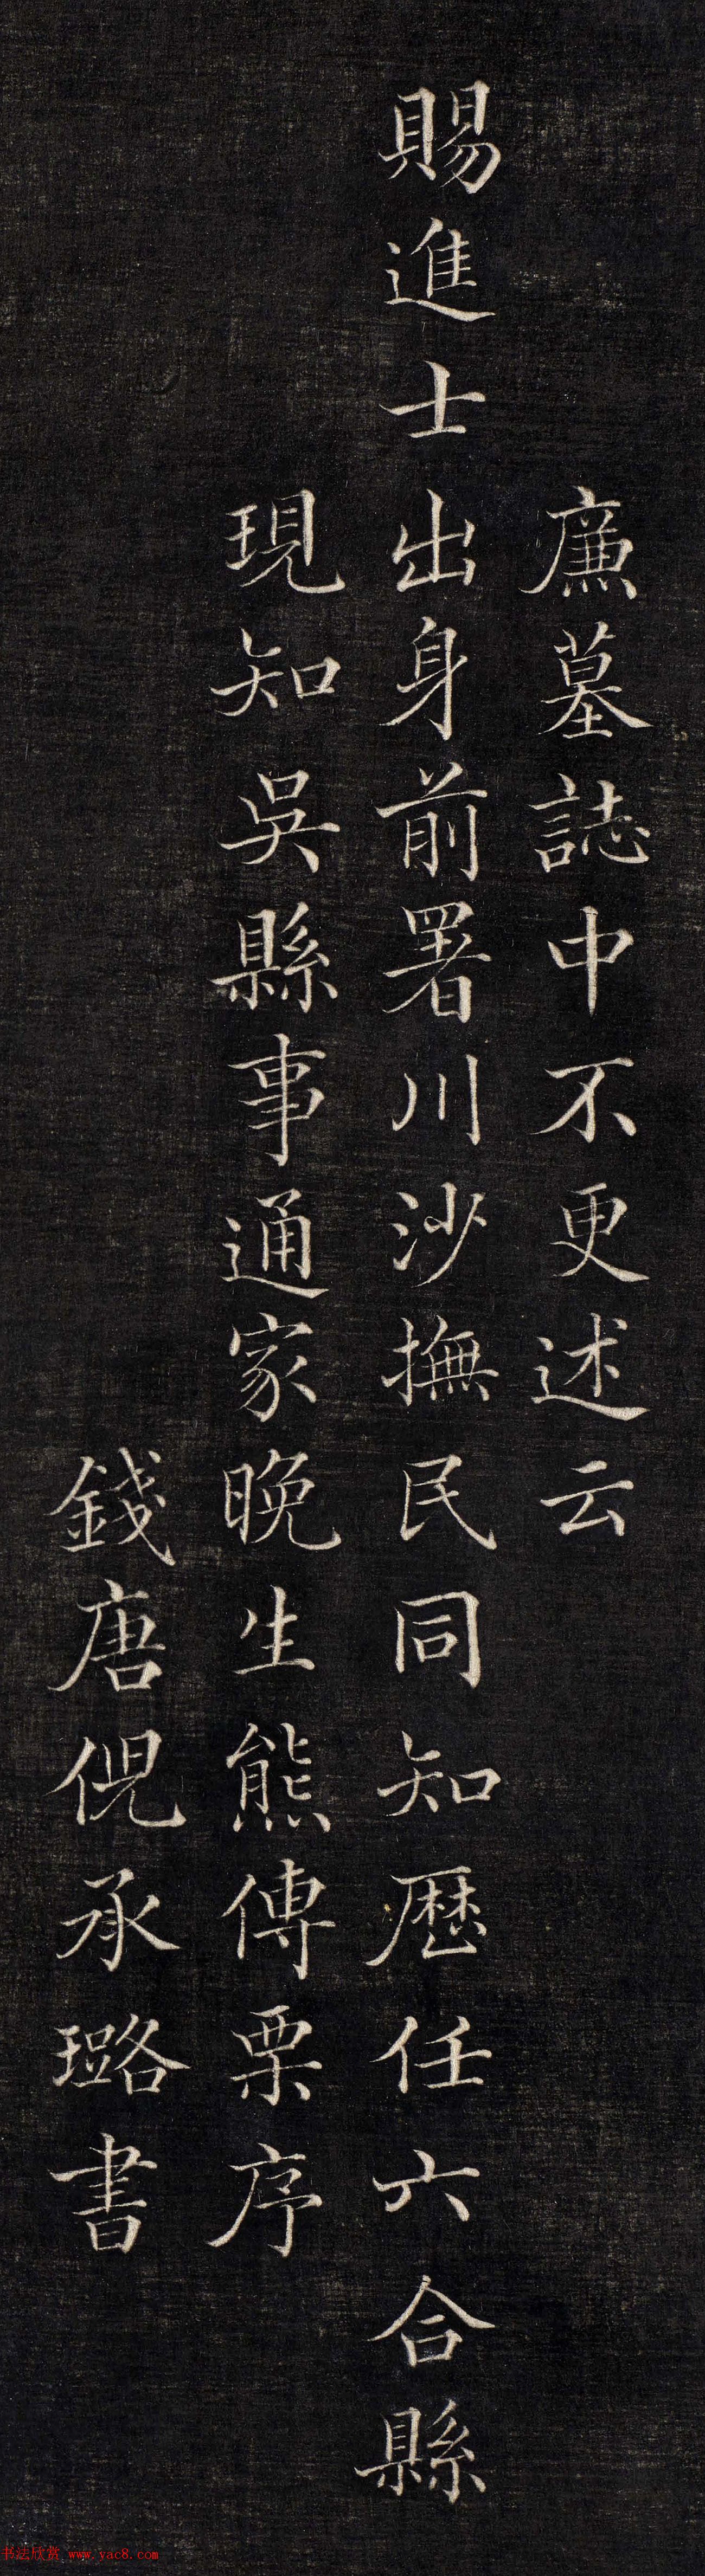 廉墓誌中不更述云
賜進士出身前署川沙撫民同知歴任六合縣
現知吳縣事通家晚生熊傳栗序
錢唐倪承璐書
书法欣赏 www.yac8.com